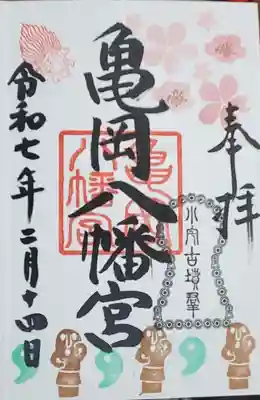 奉拝
小宅古墳群
亀岡八幡宮
亀岡
八幡宮
令和七年二月十四日